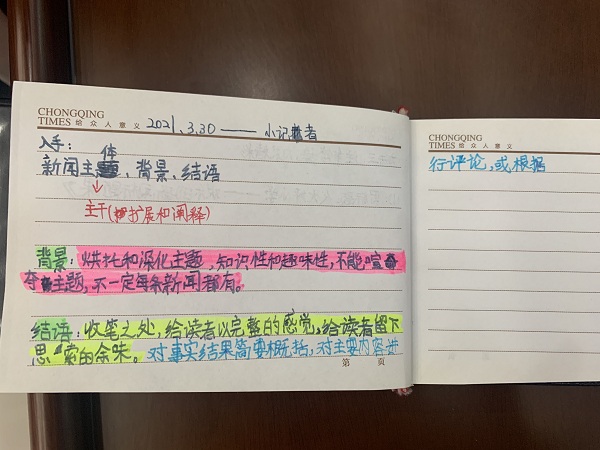 CHONGQING
TIMES 给众人意义
2021.3.30 —— 小记者
入手：
新闻主体，背景，结语
主干（扩展和阐释）
背景：烘托和深化主题，知识性和趣味性，不能喧宾
夺主题，不一定每条新闻都有。
结语：收笔之处，给读者以完整的感觉，给读者留下
思索的余味。对事实结果简要概括，对主要内容进
第 页
CHONGQING
TIMES 给众人意义
行评论，或根据